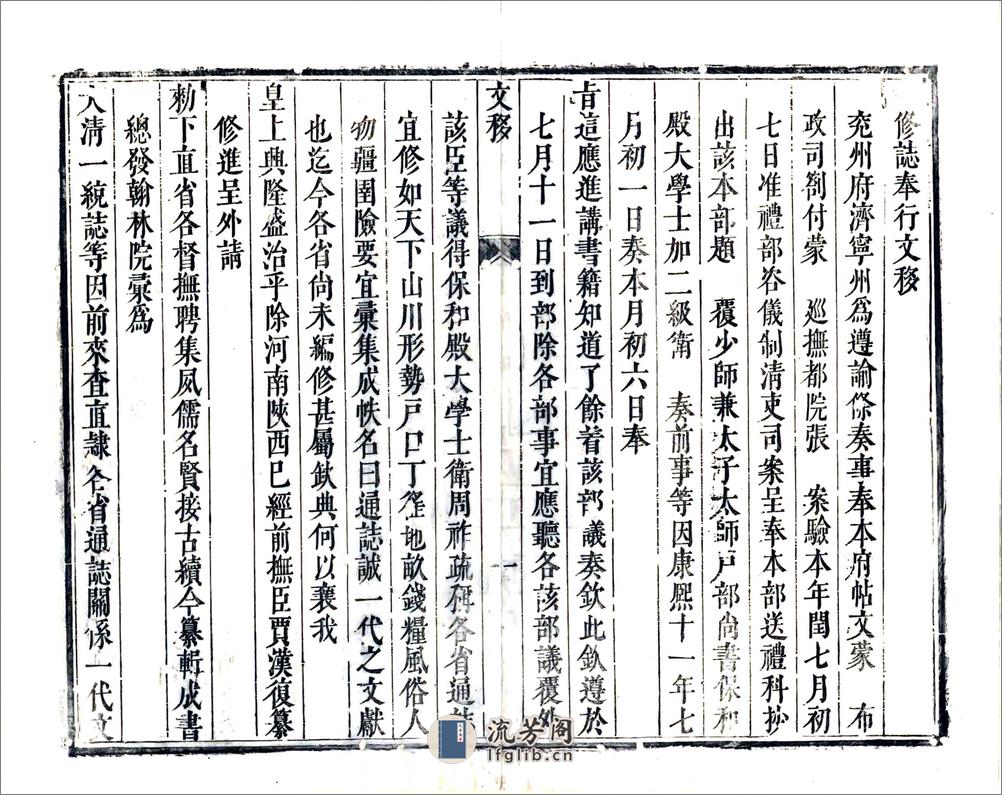 修誌奉行文移
兖州府濟寧州爲遵諭條奏事奉本府帖文蒙 布
政司劄付蒙 巡撫都院張 案驗本年閏七月初
七日准禮部咨儀制清吏司案呈奉本部送禮科抄
出該本部題 覆少師兼太子太師戸部尚書保和
殿大學士加二級衛 奏前事等因康熙十一年七
月初一日奏本月初六日奉
旨這應進講書籍知道了餘着該部議奏欽此欽遵於
七月十一日到部除各部事宜應聽各該部議覆外
文移
一
該臣等議得保和殿大學士衛周祚疏稱各省通誌
宜修如天下山川形勢戸口丁徭地畝錢糧風俗人
物疆圉險要宜彙集成帙名曰通誌誠一代之文獻
也迄今各省尚未編修甚屬欽典何以襄我
皇上興隆盛治乎除河南陜西巳經前撫臣賈漢復纂
修進呈外請
勅下直省各督撫聘集夙儒名賢接古續今纂輯成書
總發翰林院彙爲
大清一統誌等因前來查直隷各省通誌關係一代文
流芳阁
lfglib.cn